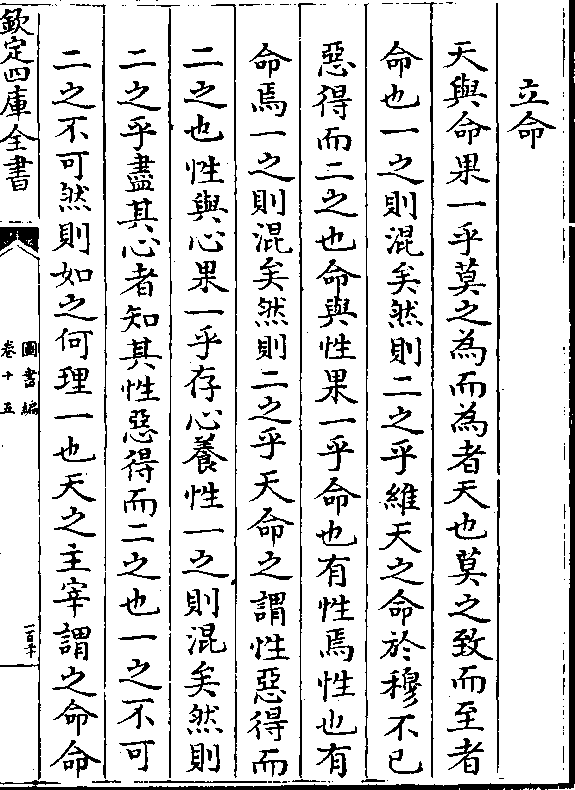 立命
天與命果一乎莫之為而為者天也莫之致而至者
命也一之則混矣然則二之乎維天之命於穆不已
惡得而二之也命與性果一乎命也有性焉性也有
命焉一之則混矣然則二之乎天命之謂性惡得而
二之也性與心果一乎存心養性一之則混矣然則
二之乎盡其心者知其性惡得而二之也一之不可
二之不可然則如之何理一也天之主宰謂之命命
欽定四庫全書
圖書編
卷十五